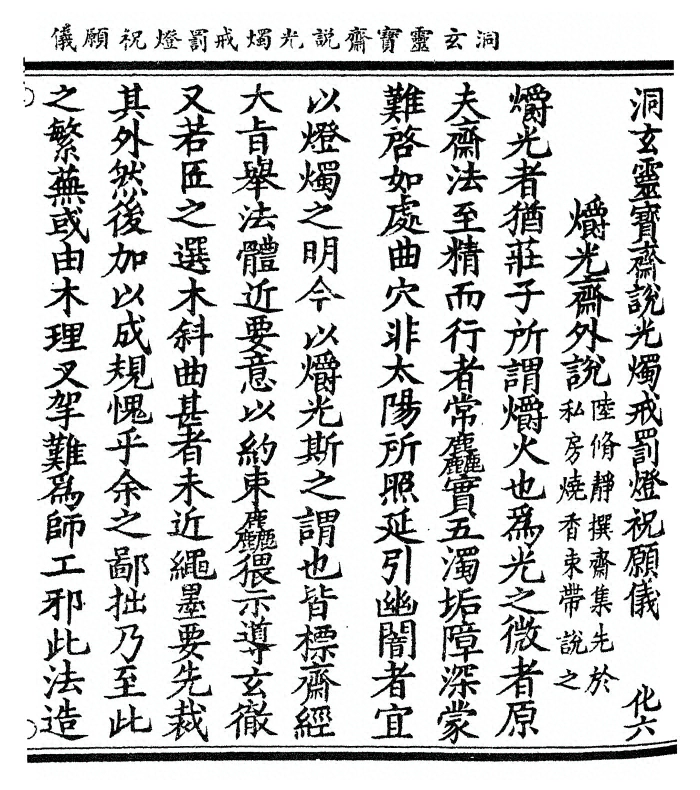 洞玄靈寶齋說光燭戒罰燈祝願儀
洞玄靈寶齋說光燭戒罰燈祝願儀　化六
爝光齋外說 陸脩靜撰齋集先於
私房燒香束帶說之
爝光者猶莊子所謂爝火也為光之微者原
夫齋法至精而行者常麤實五濁垢障深蒙
難啓如處曲穴非太陽所照延引幽闇者宜
以燈燭之明今以爝光斯之謂也皆標齋經
大旨舉法體近要意以約束麤猥示導玄徹
又若匠之選木斜曲甚者未近繩墨要先裁
其外然後加以成規愧乎余之鄙拙乃至此
之繁蕪或由木理叉牙難為師工邪此法造